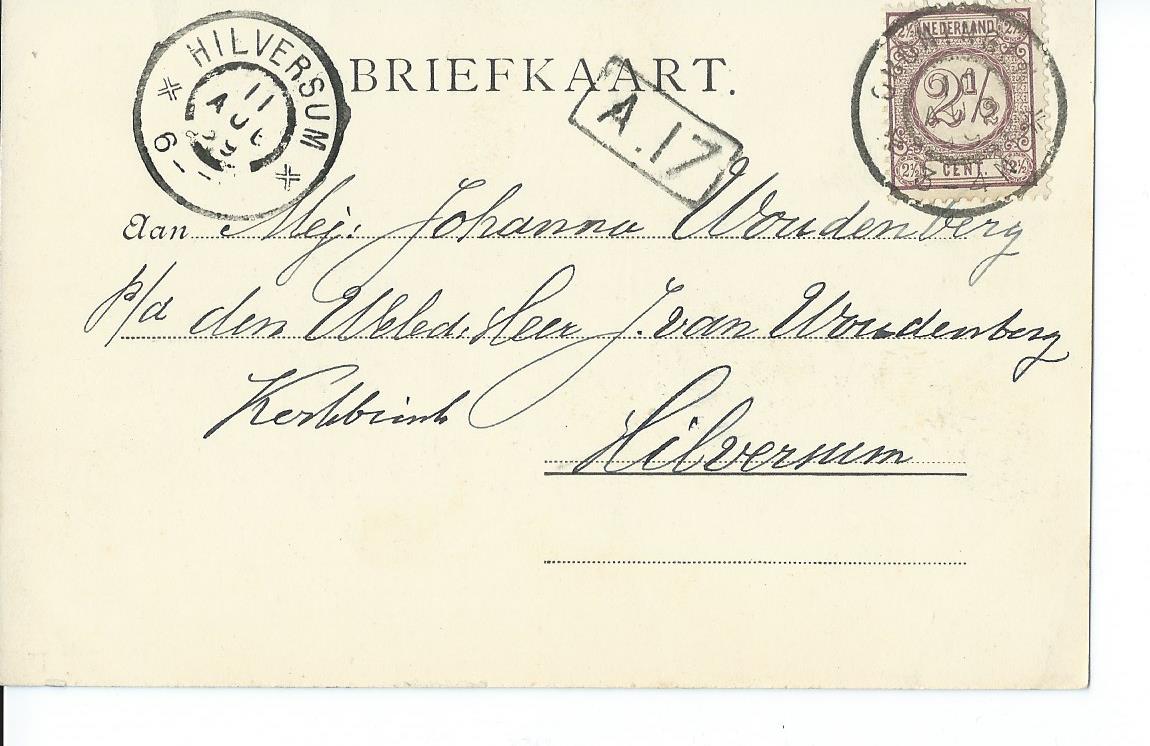 HILVERSUM
11
AUG
6
BRIEFKAART.
A.17
NEDERLAND
2½
CENT.
2½ 2½
Aan Mej: Johanna Woudenberg
p/a den Weled: Heer J. van Woudenberg
Kerkbrink
Hilversum